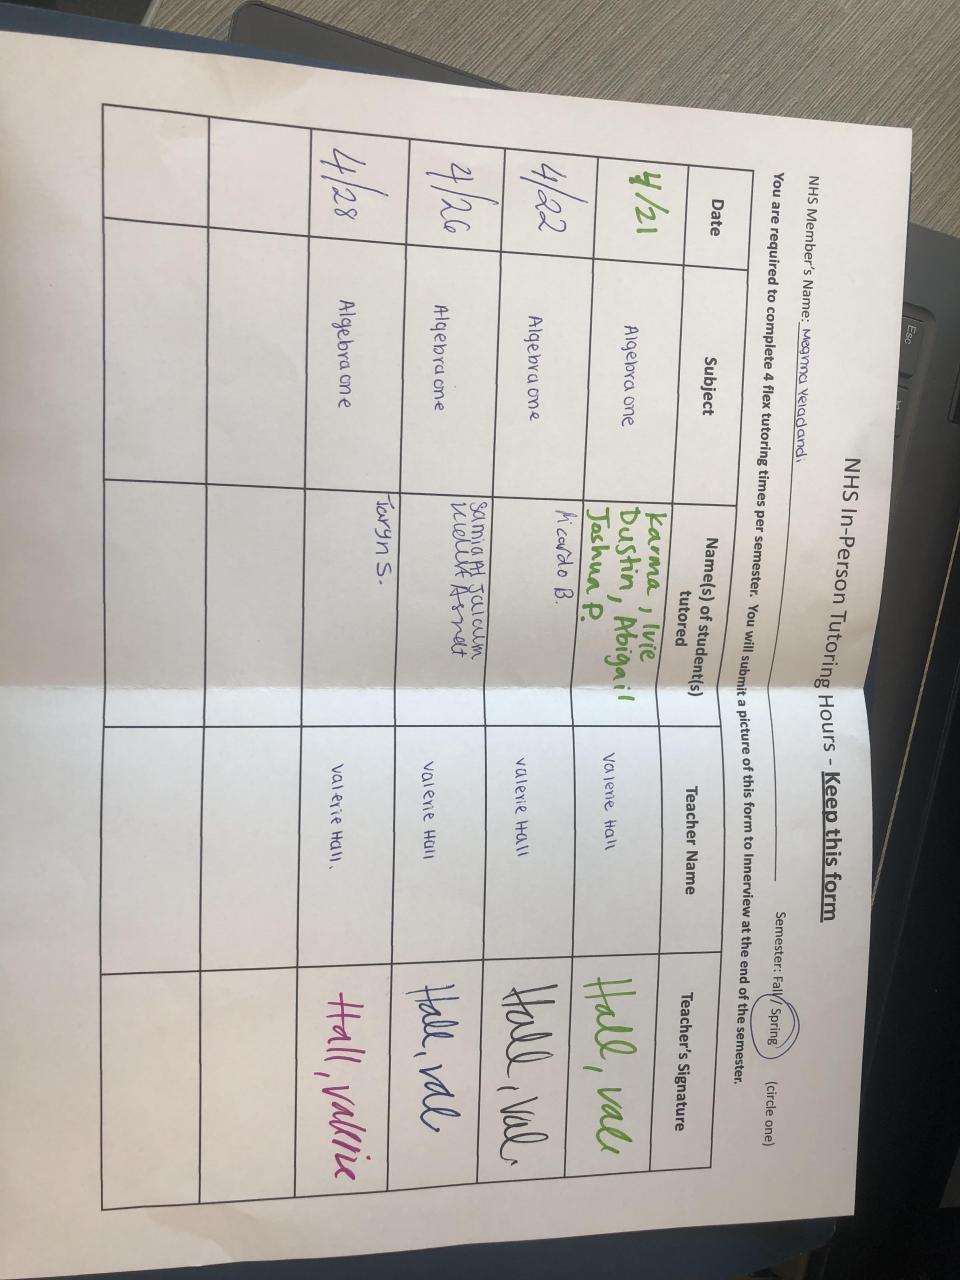 NHS In-Person Tutoring Hours - Keep this form
NHS Member's Name: Meghna Veladandi Semester: Fall / Spring (circle one)
You are required to complete 4 flex tutoring times per semester. You will submit a picture of this form to Innerview at the end of the semester.
Date Subject Name(s) of student(s) Teacher Name Teacher's Signature
tutored
4/21 Algebra one Karma, Ivie valerie Hall Hall, vale
Dustin, Abigail
Joshua P.
4/22 Algebra one Ricardo B. valerie Hall Hall, Val
4/26 Algebra one valerie Hall Hall, val
4/28 Algebra one Taryn S. valerie Hall. Hall, valerie
Esc